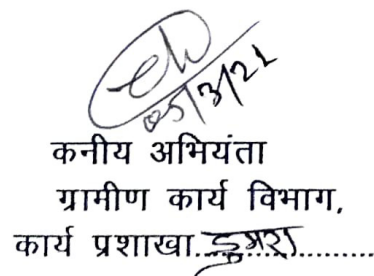 05/3/21
कनीय अभियंता
ग्रामीण कार्य विभाग,
कार्य प्रशाखा डुमरा